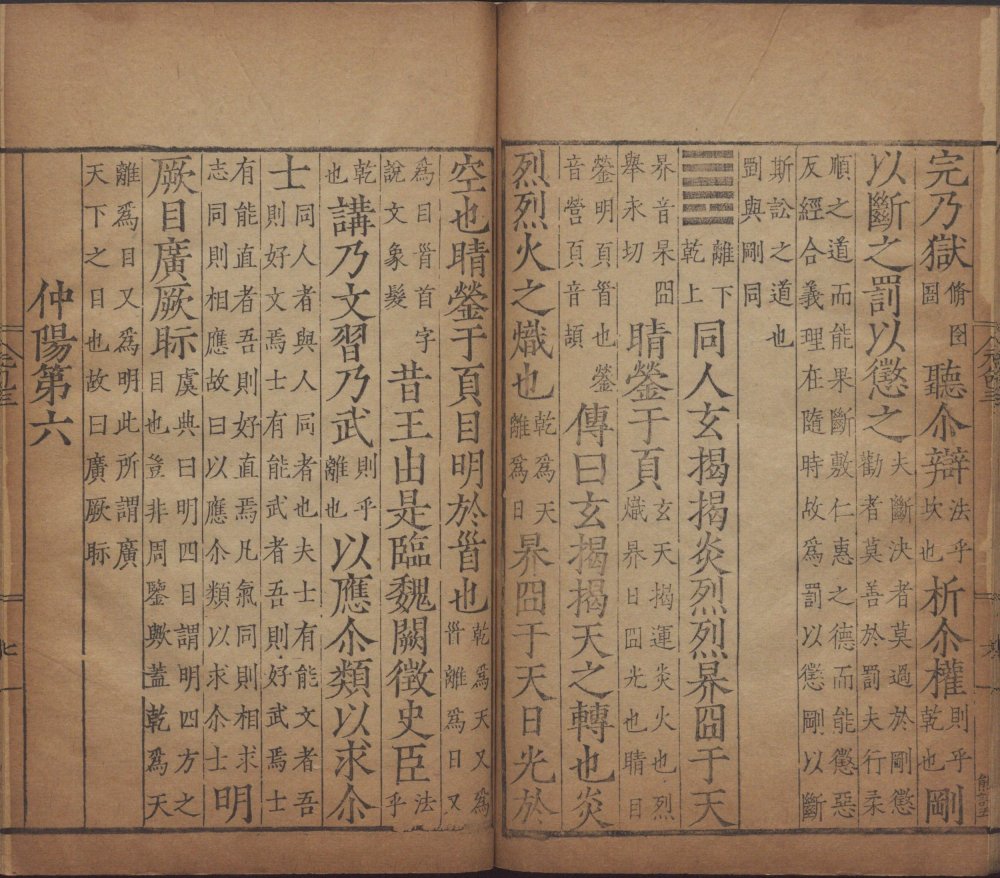 完乃獄脩囹圄聽尒辯法乎坎也析尒權則乎乾也剛
以斷之罰以懲之夫斷決者莫過於剛懲勸者莫善於罰夫行柔
順之道而能果斷敷仁惠之德而能懲惡
反經合義理在隨時故爲罰以懲剛以斷
斯訟之道也
㓻與剛同
離下乾上同人玄揭揭炎烈烈昦囧于天
昦音杲囧舉永切睛鎣于頁玄天揭運炎火也烈熾昦日囧光也睛目
鎣明頁𩠐也鎣音營頁音頡傳曰玄揭揭天之轉也炎
烈烈火之熾也乾爲天離爲日昦囧于天日光於
空也睛鎣于頁目明於𩠐也乾爲天又爲𩠐離爲日又
爲目𩠐首字說文象髮昔王由是臨魏闕徵史臣法乎
乾也講乃文習乃武則乎離也以應尒類以求尒
士同人者與人同者也夫士有能文者吾則好文焉士有能武者吾則好武焉士
有能直者吾則好直焉凡氣同則相求志同則相應故曰以應尒類以求尒士明
厥目廣厥眎虞典曰明四目謂明四方之目也豈非周鑒歟蓋乾爲天
離爲目又爲明此所謂廣
天下之目也故曰廣厥眎
仲陽第六
七